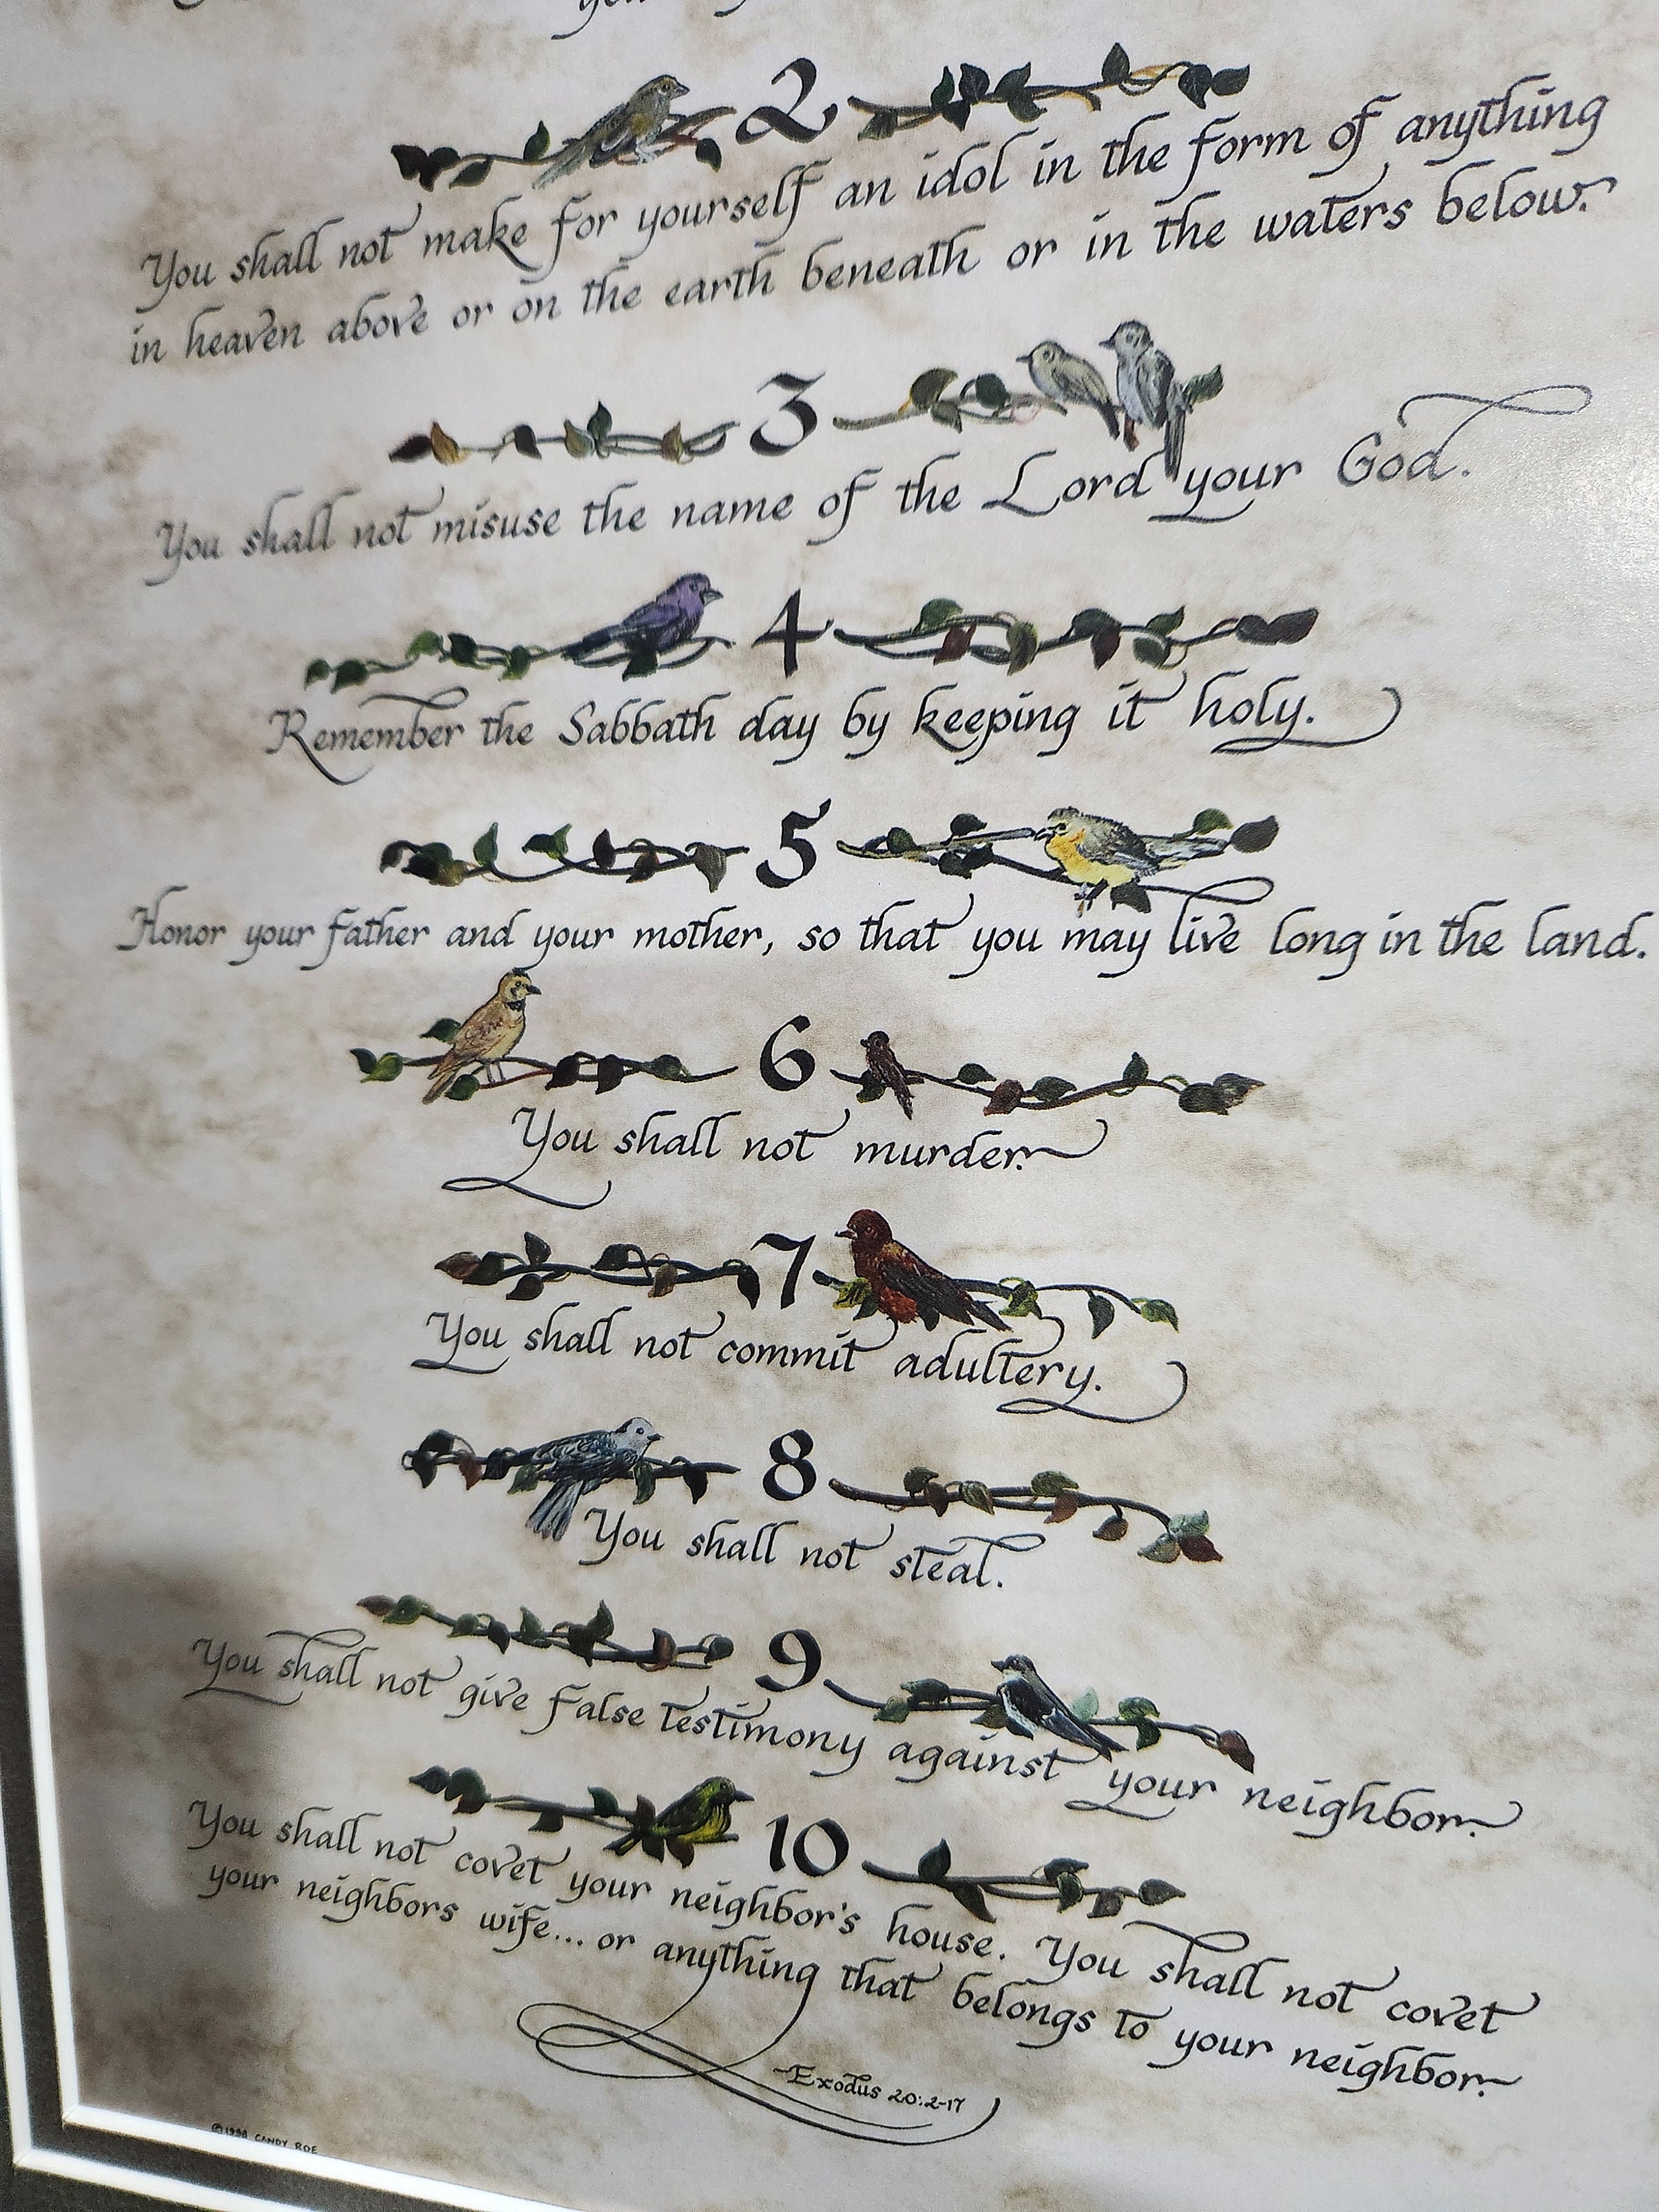 2
You shall not make for yourself an idol in the form of anything
in heaven above or on the earth beneath or in the waters below.
3
You shall not misuse the name of the Lord your God.
4
Remember the Sabbath day by keeping it holy.
5
Honor your father and your mother, so that you may live long in the land.
6
You shall not murder.
7
You shall not commit adultery.
8
You shall not steal.
9
You shall not give false testimony against your neighbor.
10
You shall not covet your neighbor's house. You shall not covet
your neighbors wife... or anything that belongs to your neighbor.
-Exodus 20:2-17
©1998 CANDY ROE